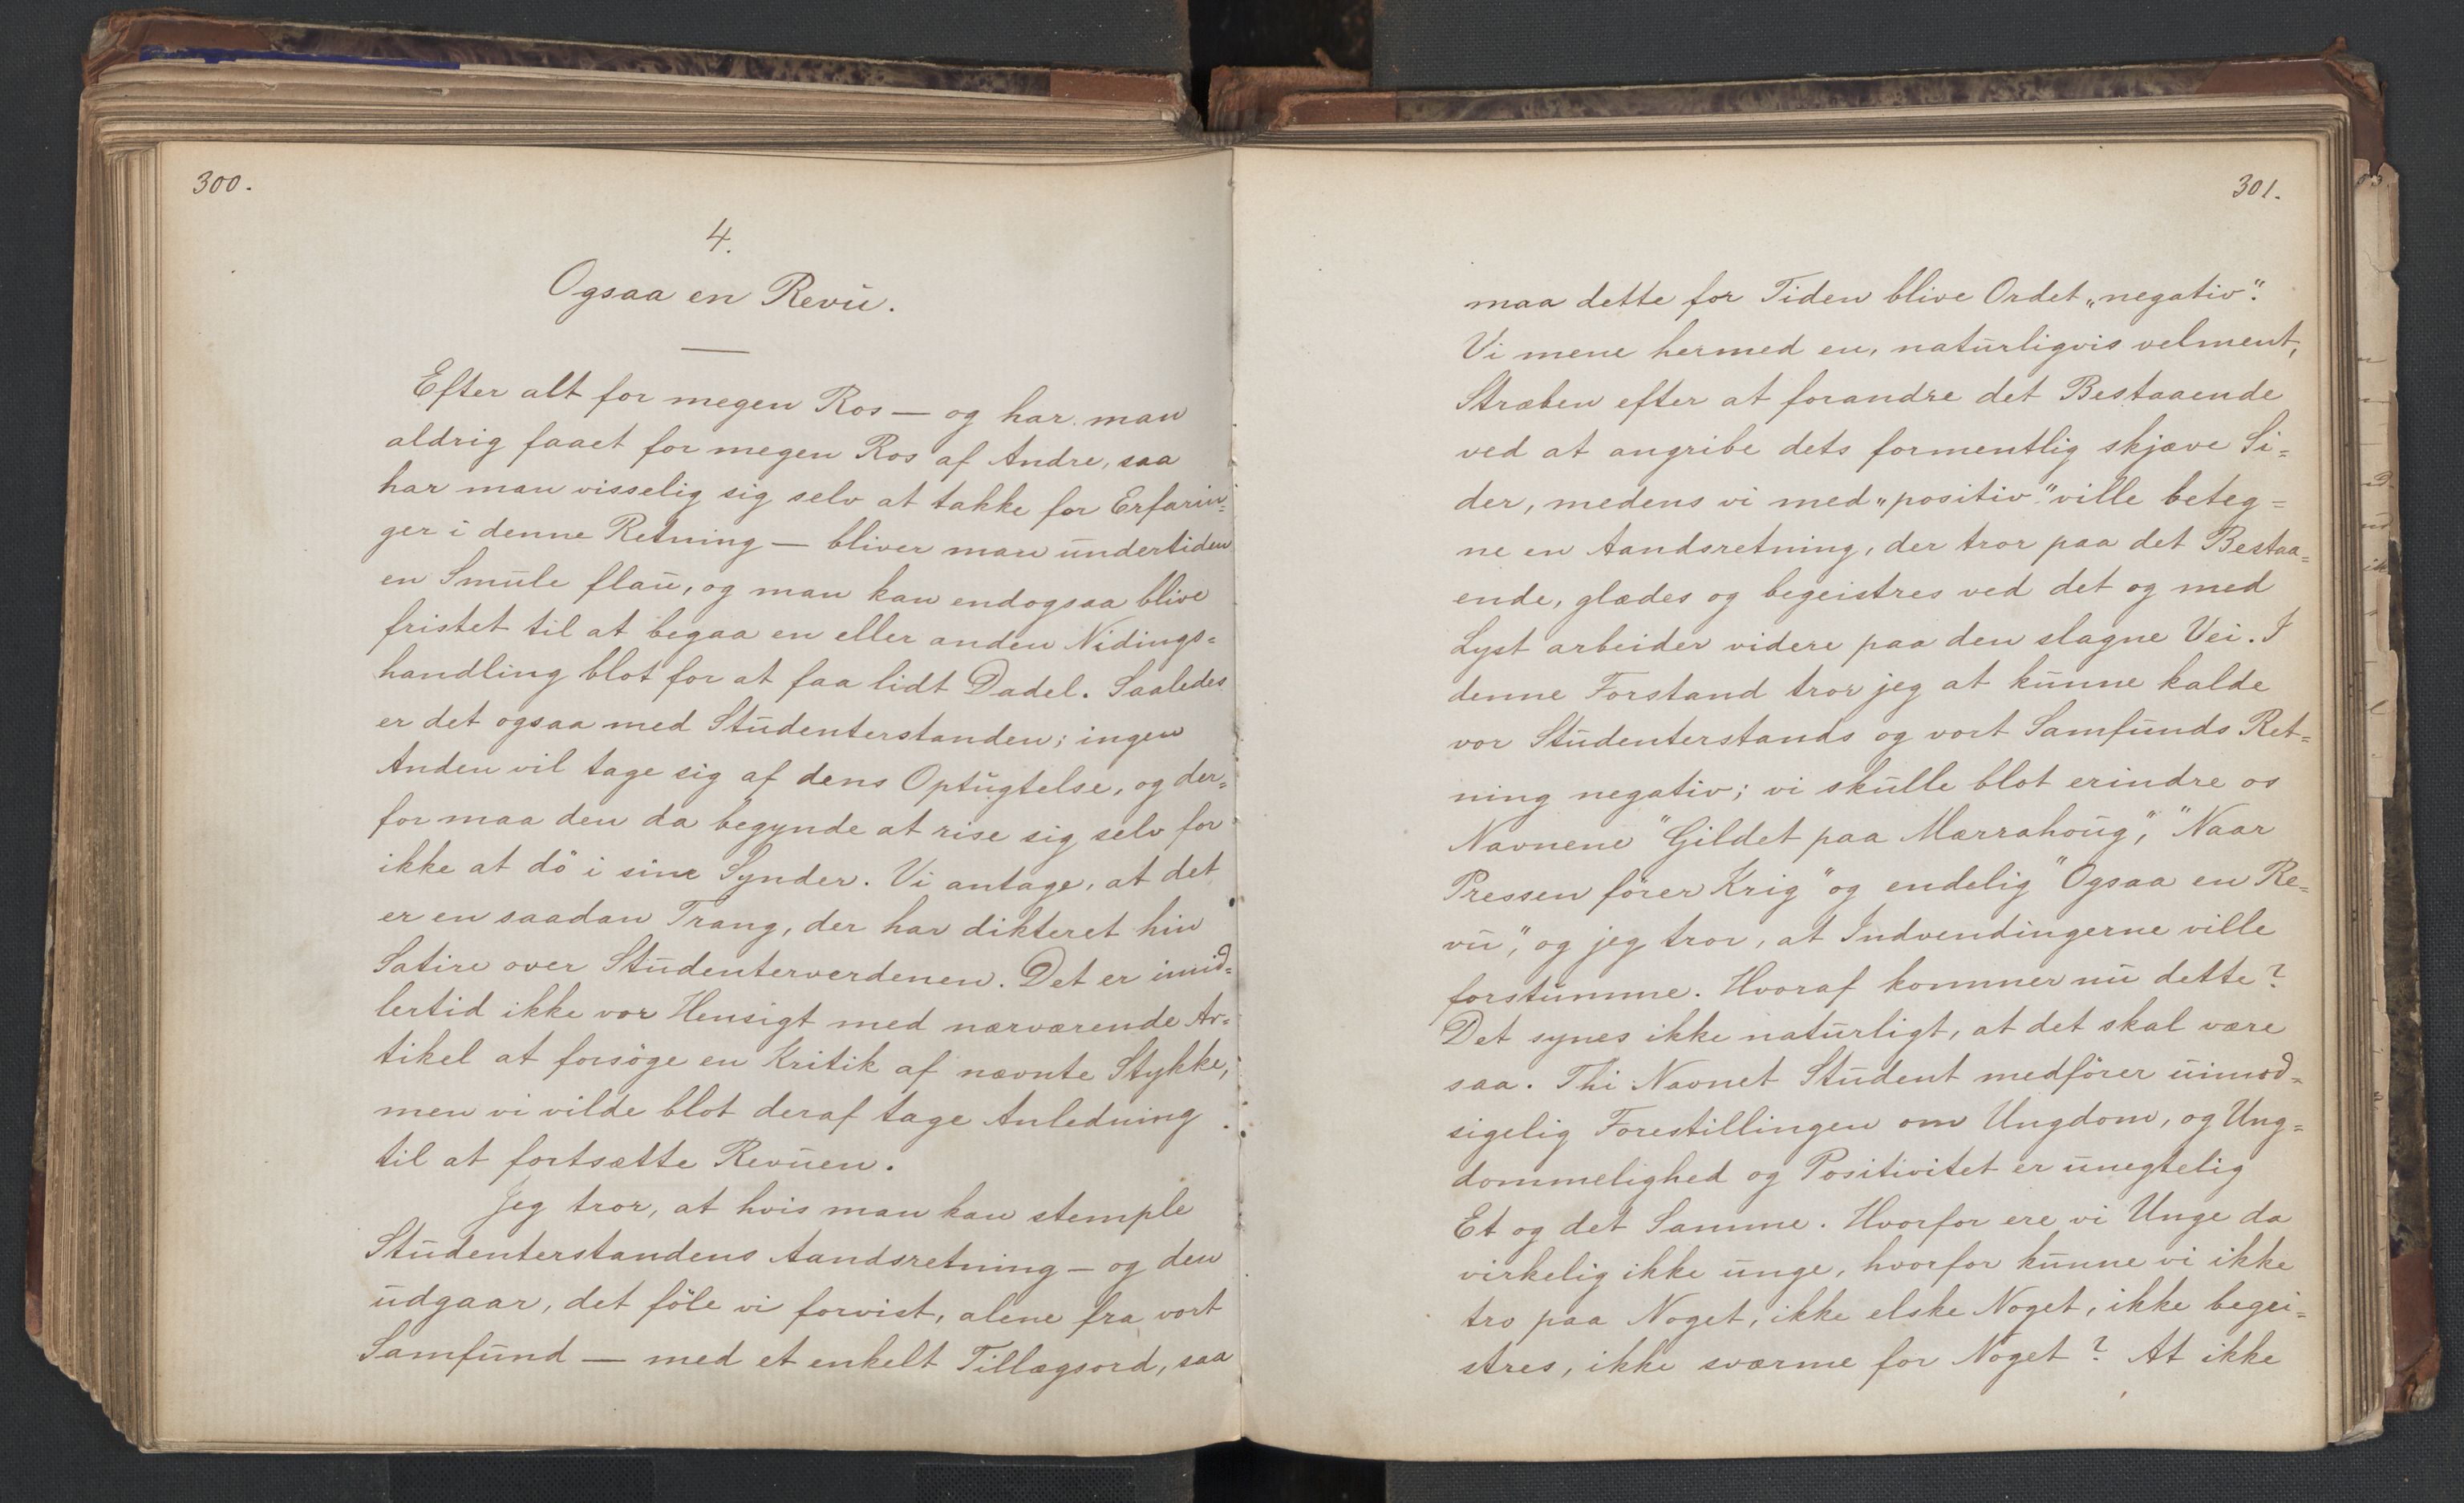 300.
4.
Ogsaa en Revü.
Efter alt for megen Ros — og har man
aldrig faaet for megen Ros af Andre, saa
har man visselig sig selv at takke for Erfarin=
ger i denne Retning — bliver man undertiden
en Smule flau, og man kan endogsaa blive
fristet til at begaa en eller anden Nidings=
handling blot for at faa lidt Dadel. Saaledes
er det ogsaa med Studenterstanden; ingen
Anden vil tage sig af dens Optugtelse, og der=
for maa den da begynde at rise sig selv for
ikke at dö i sine Synder. Vi antage, at det
er en saadan Trang, der har dikteret hin
Satire over Studenterverdenen. Det er imid=
lertid ikke vor Hensigt med nærværende Ar=
tikel at forsöge en Kritik af nævnte Stykke,
men vi vilde blot deraf tage Anledning
til at fortsætte Revuen.
Jeg tror, at hvis man kan stemple
Studenterstandens Aandsretning — og den
udgaar, det föle vi forvist, alene fra vort
Samfund — med et enkelt Tillægsord, saa
301.
maa dette for Tiden blive Ordet „negativ“.
Vi mene hermed en, naturligvis velment,
Stræben efter at forandre det Bestaaende
ved at angribe dets formentlig skjæve Si=
der, medens vi med „positiv“ ville beteg=
ne en Aandsretning, der tror paa det Bestaa=
ende, glædes og begeistres ved det og med
Lyst arbeider videre paa den slagne Vei. I
denne Forstand tror jeg at kunne kalde
vor Studenterstands og vort Samfunds Ret=
ning negativ; vi skulle blot erindre os
Navnene "Gildet paa Mærrahoug", "Naar
Pressen förer Krig" og endelig "Ogsaa en Re=
vu", og jeg tror, at Indvendingerne ville
forstumme. Hvoraf kommer nu dette?
Det synes ikke naturligt, at det skal være
saa. Thi Navnet Student medförer uimod=
sigelig Forestillingen om Ungdom, og Ung=
dommelighed og Positivitet er unegtelig
Et og det Samme. Hvorfor ere vi Unge da
virkelig ikke unge, hvorfor kunne vi ikke
tro paa Noget, ikke elske Noget, ikke begei=
stres, ikke sværme for Noget? At ikke